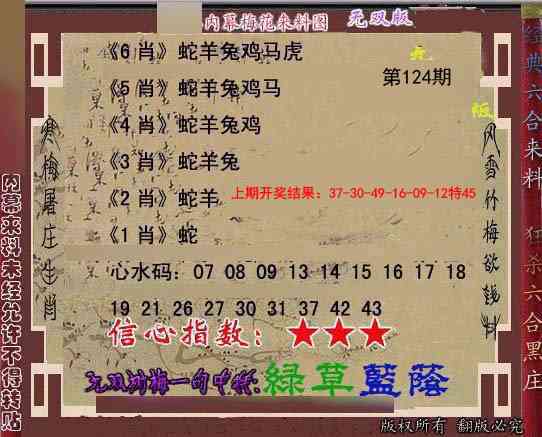 内幕梅花来料图 无双版
《6 肖》蛇羊兔鸡马虎
无
第124期
《5 肖》蛇羊兔鸡马
版
《4 肖》蛇羊兔鸡
《3 肖》蛇羊兔
《2 肖》蛇羊
上期开奖结果：37-30-49-16-09-12特45
《1 肖》蛇
心水码：07 08 09 13 14 15 16 17 18
19 21 26 27 30 31 37 42 43
信心指数：★★★
无双刘梅一句中特:緑草藍蔭
寒梅屠庄生肖
风雪竹梅欲钱料
内幕来料未经允许不得转贴
经典六合来料 狂杀六合黑庄
版权所有 翻版必究